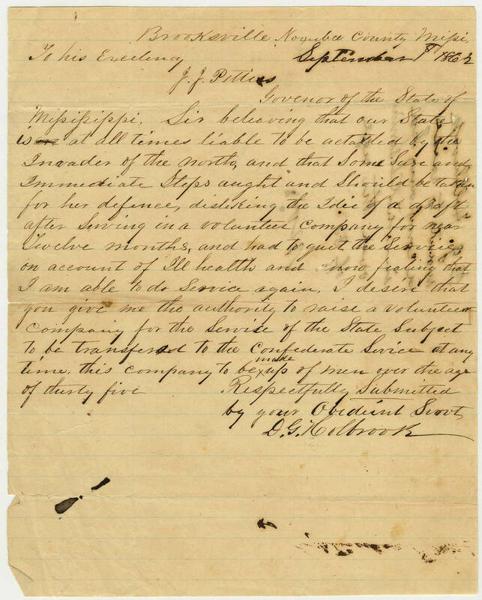 Brooksville Noxubee County Missi
To his Excelency September 8th 1862
J. J. Pettus
Govenor of the State of
Missisippi. Sir beleaving that our State
is at all times liable to be actacked by the
Invader of the north, and that Some Sure and
Immediate Steps aught and Should be taken
for her defence, disliking the Idie of a draft
after Serving in a volunteer Company for near
Twelve months, and had to quit the Service
on account of Ill health and now feeling that
I am able to do Service again. I desire that
you give me the authority to raise a volunteer
Company for the Service of the State Subject
to be transfered to the Confederate Service at any
time. this Company to be made up of men over the age
of thirty five Respectfully Submitted
by your Obedient Servt
D. G. Holbrook